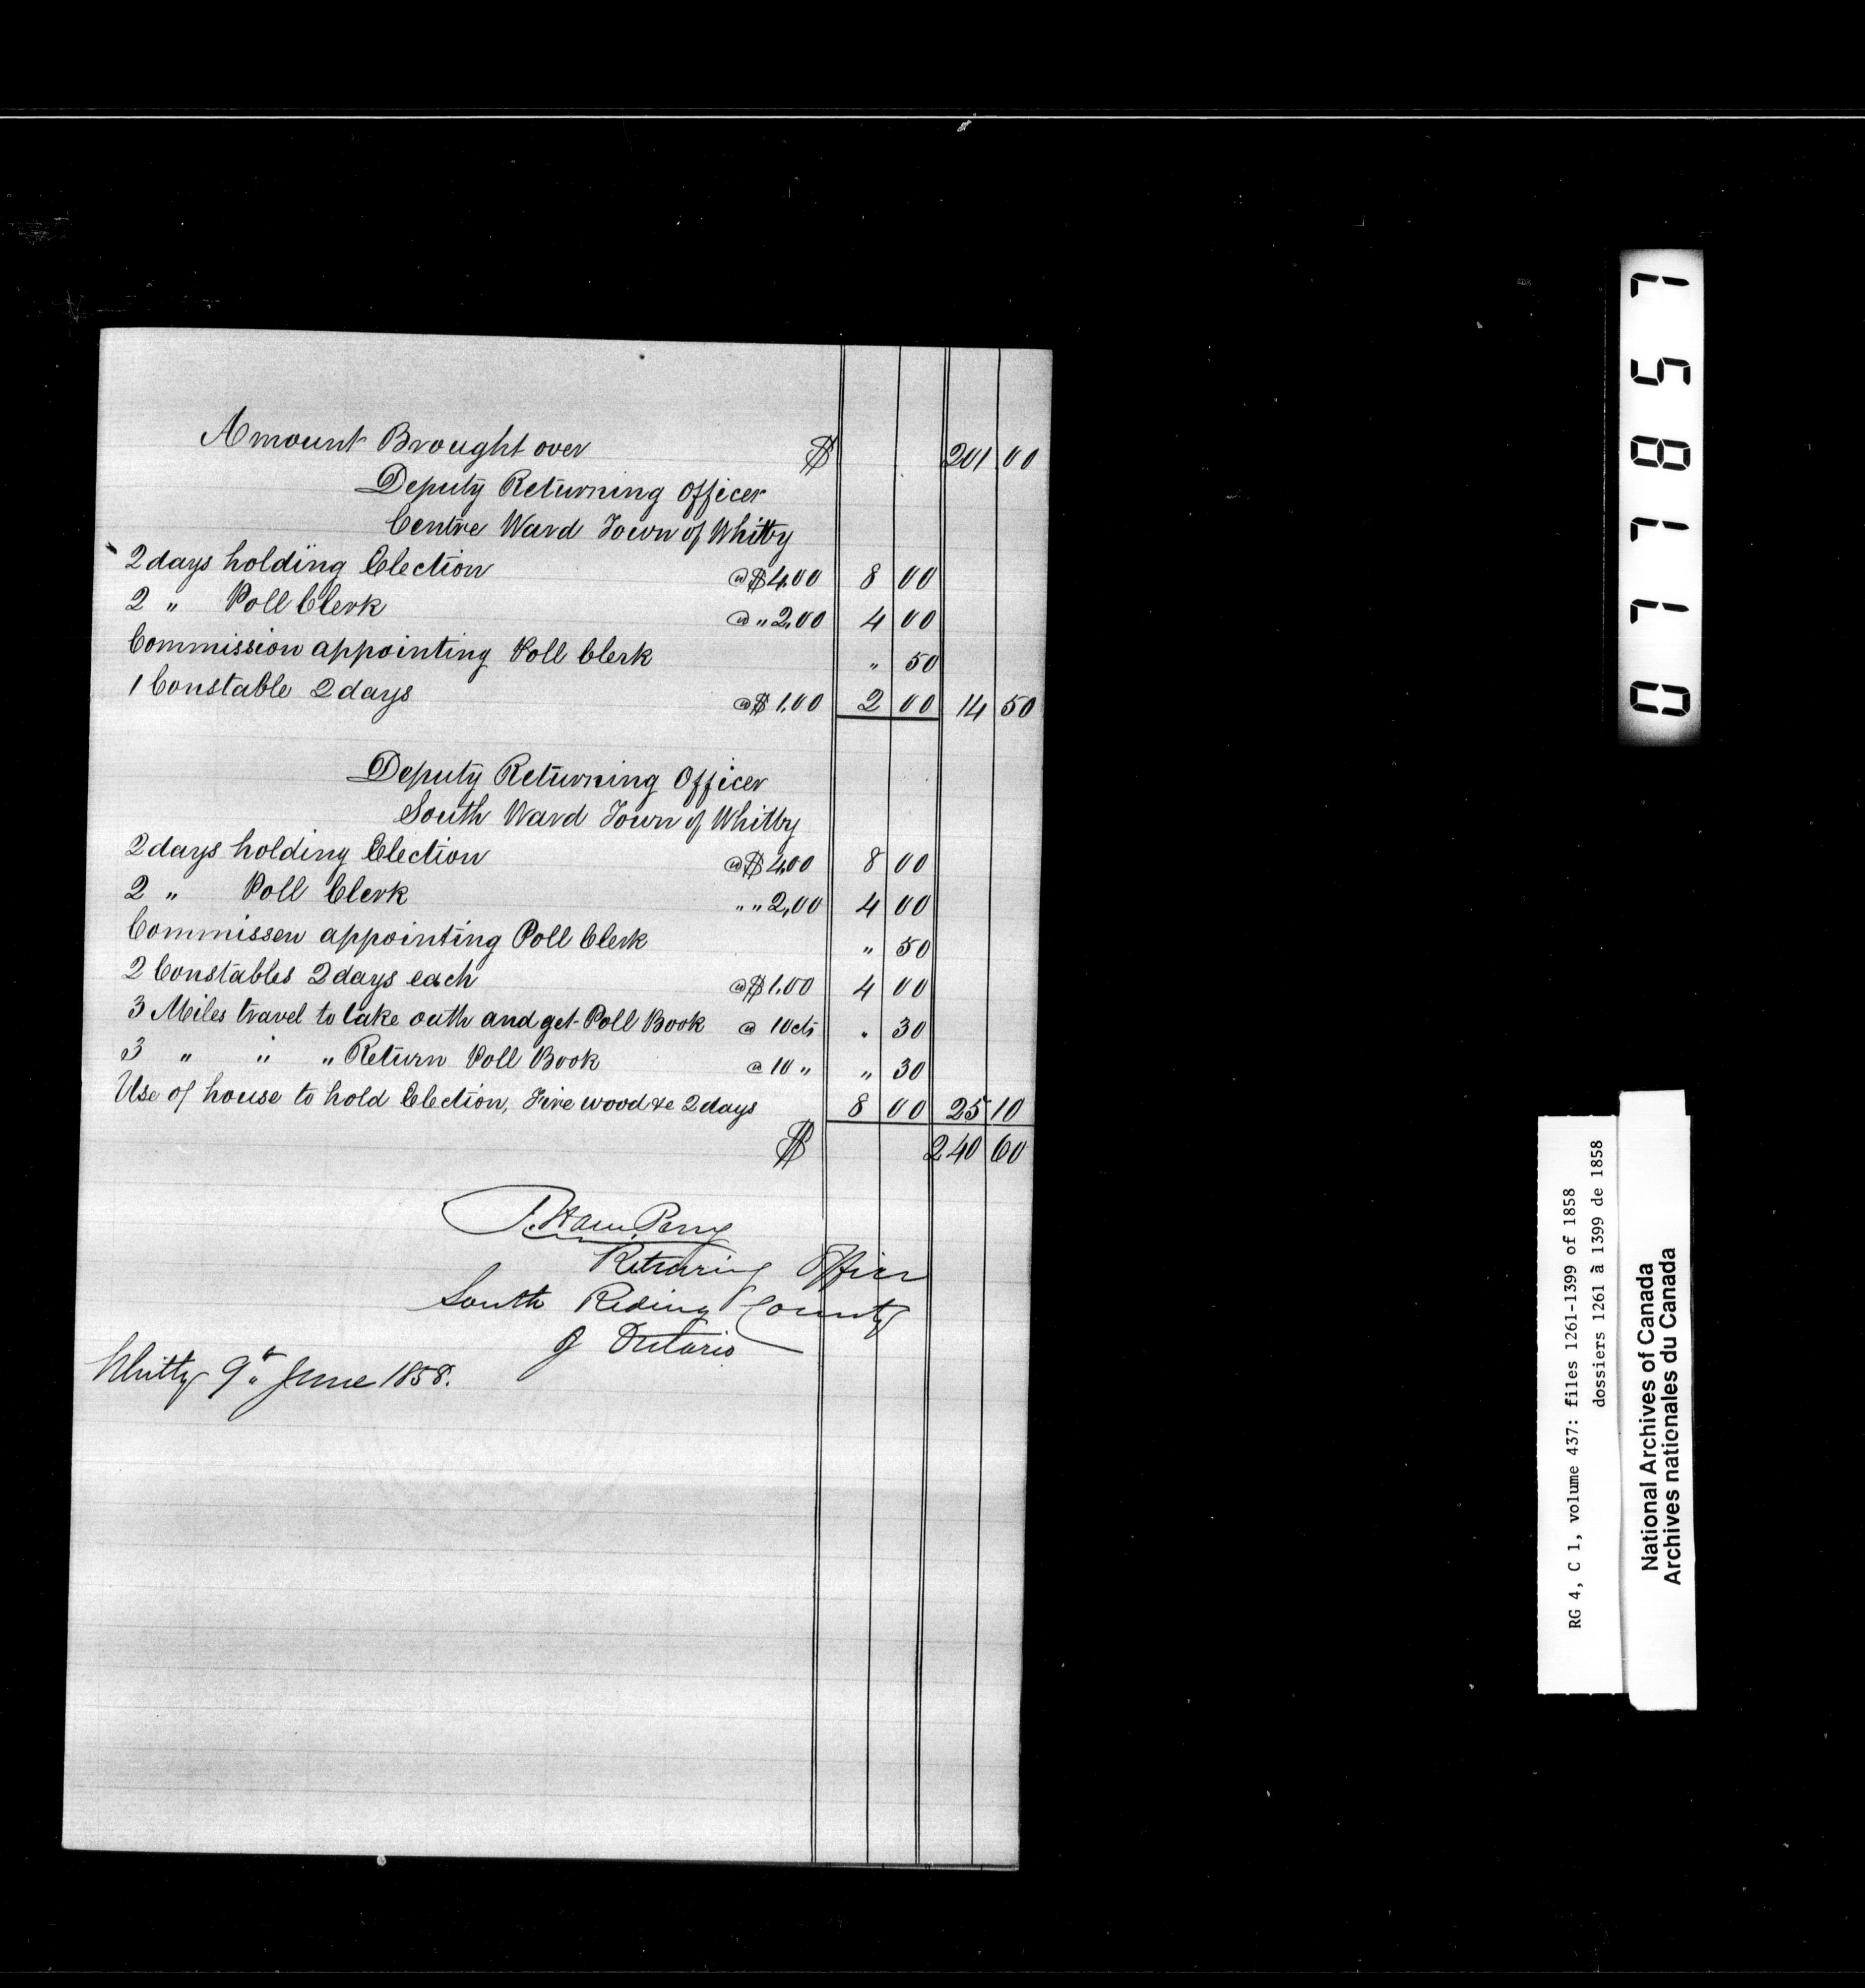 Amount Brought over $ 201 00
Deputy Returning Officer
Centre Ward Town of Whitby
2 days holding Election @ $ 4.00 8 00
2 " Poll Clerk @ " 2,00 4 00
Commission appointing Poll Clerk " 50
1 Constable 2 days @ $ 1.00 2 00 14 50
Deputy Returning Officer
South Ward Town of Whitby
2 days holding Election @ $ 4.00 8 00
2 " Poll Clerk " " 2,00 4 00
Commissen appointing Poll Clerk " 50
2 Constables 2 days each @ $ 1.00 4 00
3 Miles travel to take oath and get Poll Book @ 10 cts " 30
3 " " " Return Poll Book @ 10 " " 30
Use of house to hold Election, Fire wood &c 2 days 8 00 25 10
$ 240 60
J. Ham Perry
Returning Officer
South Riding County
of Ontario
Whitby 9th June 1858.
077857
RG 4, C 1, volume 437: files 1261-1399 of 1858
dossiers 1261 à 1399 de 1858
National Archives of Canada
Archives nationales du Canada